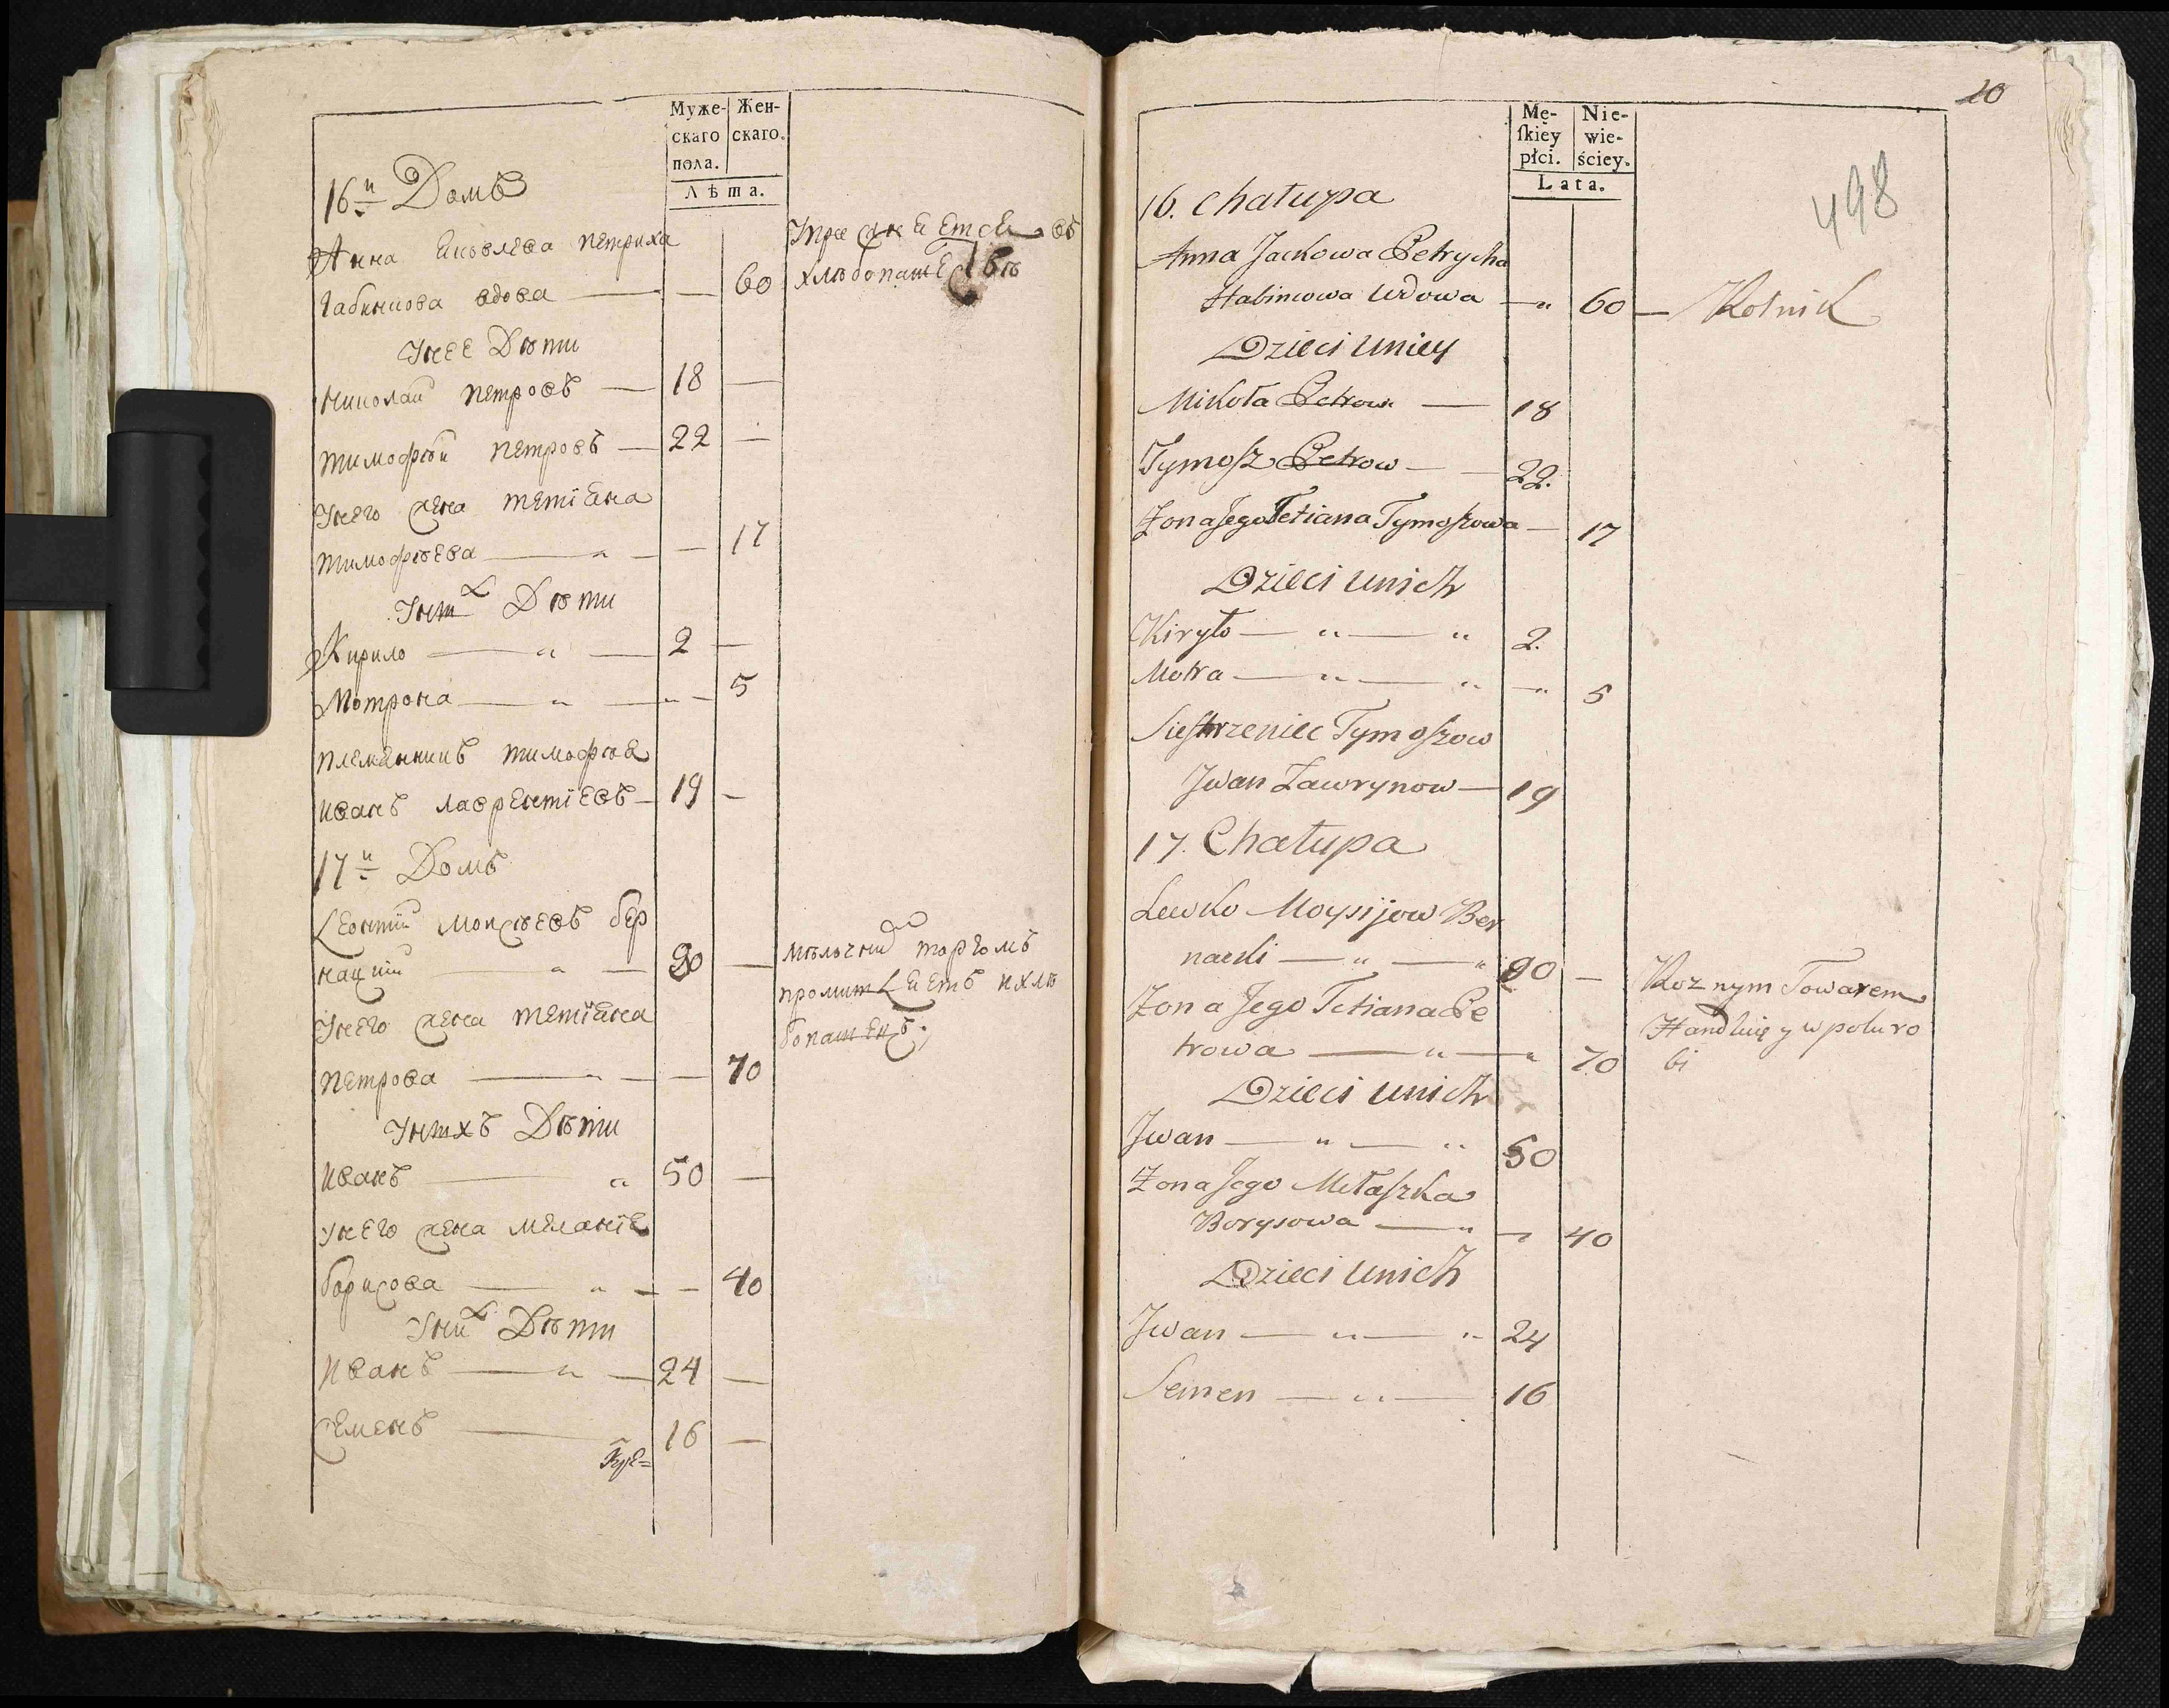 Муже-
скаго
пола.
Жен-
скаго.
Лѣта.
16й Домъ
Анна Яковлева петриха
габинцова вдова — — 60
Упражняется въ
хлѣбопашествѣ
Унее Дѣти
Николай петровъ — 18 —
тимофѣй петровъ — 22 —
Унего жена тетіяна
тимофѣева — „ — — 17
Дѣти
Кирило — „ — 2 —
Мотрона — „ — „ — 5
племянникъ тимофѣя
иванъ лаврентіевъ — 19 —
17й Домъ
Леонтій моисѣевъ бер
нацкій — „ — 90 —
мѣлочній торгомъ
промишляетъ ихлѣ
бопашецъ;
Унего жена тетіяна
петрова — „ — — 70
Унихъ Дѣти
иванъ — „ 50 —
унего жена меланія
борисова — „ — — 40
Уних Дѣти
иванъ — „ — 24 —
Семенъ — 16 —
20
498
Mę-
ſkiey
płci.
Nie-
wie-
ściey.
Lata.
16. Chałupa
Anna Jackowa Petrycha
Habincowa Wdowa — „ 60 — Rolnik
Dzieci uniey
Mikoła Petrow — 18
Tymoſz Petrow — — 22.
Zona Jego Tetiana Tymoſzowa — 17
Dzieci unich
Kiryło — „ — „ 2.
Motra — „ — „ — „ 5
Sieſtrzeniec Tymoſzow
Jwan Ławrynow — 19
17. Chałupa
Lewko Moysijow Ber
nacki — „ — „ 90 —
Roznym Towarem
Handluię y w polu ro
bi
Zona Jego Tetiana Pe
trowa — „ — „ 70
Dzieci unich
Jwan — „ — „ 50
Zona Jego Mełaſzka
Borysowa — „ — 40
Dzieci unich
Jwan — „ — „ 24
Semen — „ — 16